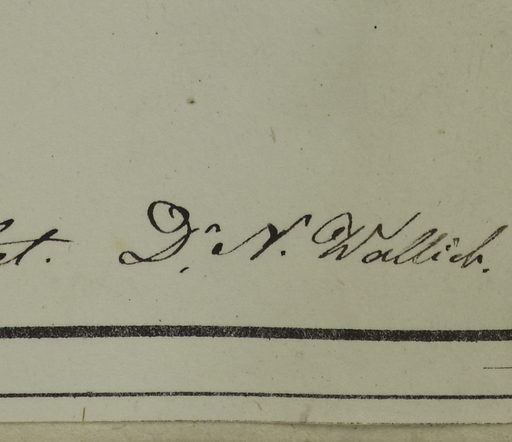 Dr. N. Wallich.